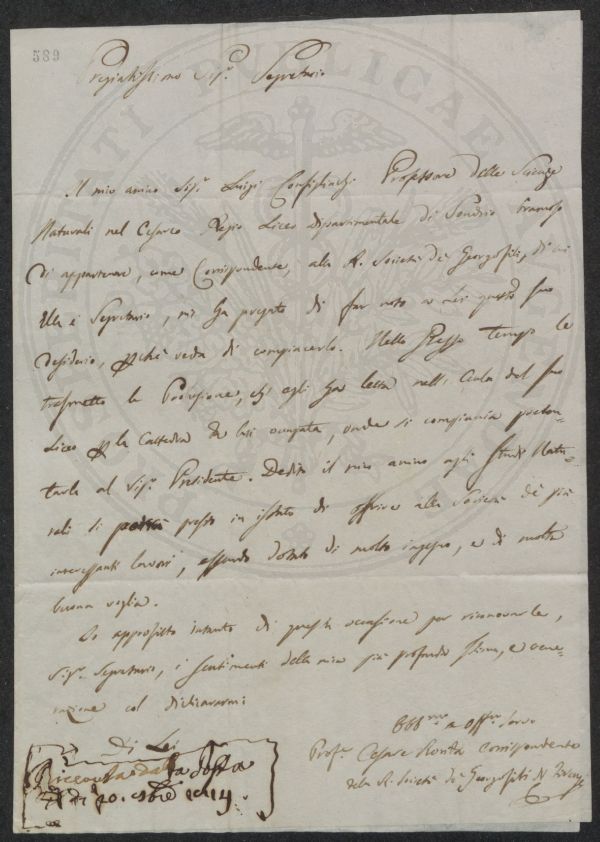 589
Pregiatissimo Sigr. Segretario
Il mio amico Sigr. Luigi Configliachi Professore delle Scienze
Naturali nel Cesareo Regio Liceo dipartimentale di Sondrio bramoso
di appartenere, come Corrispondente, alla R. Società dei Georgofili, di cui
Ella è Segretario, mi ha pregato di far noto a Lei questo suo
desiderio, perchè veda di compiacerlo. Nello stesso tempo le
trasmetto la Prolusione, ch' egli ha letta nell' Aula del suo
Liceo per la Cattedra da lui occupata, onde si compiacia presen-
tarla al Sigr. Presidente. Dedito il mio amico agli studi Natu-
rali si presto in istato di offrire alla Società de' più
interessanti lavori, essendo dotato di molto ingegno, e di molta
buona voglia.
Io approfitto intanto di questa occasione per rinnovarle,
Sigr. Segretario, i sentimenti della mia più profonda stima, e vene-
razione col dichiararmi
Di Lei
Obbmo e Servo
Profr. Cesare corrispondente
della R. Società dei Georgofili di
Posta
30. 1814